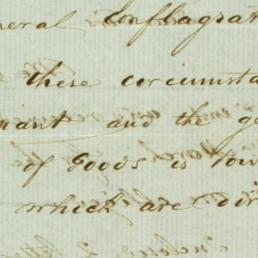 neral Conflagra
these circumsta
nant and the ge
of Goods is tow
which are dir